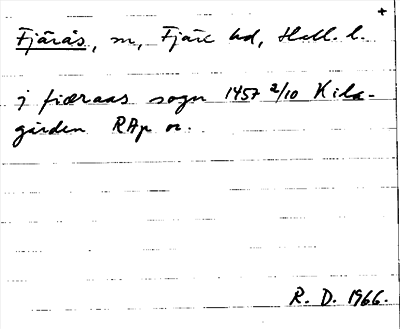 +
Fjärås, sn, Fjäre hd, Hall. l.
j fiæraas sogn 1457 2/10 Kila-
gården RAp or.
R. D. 1966.